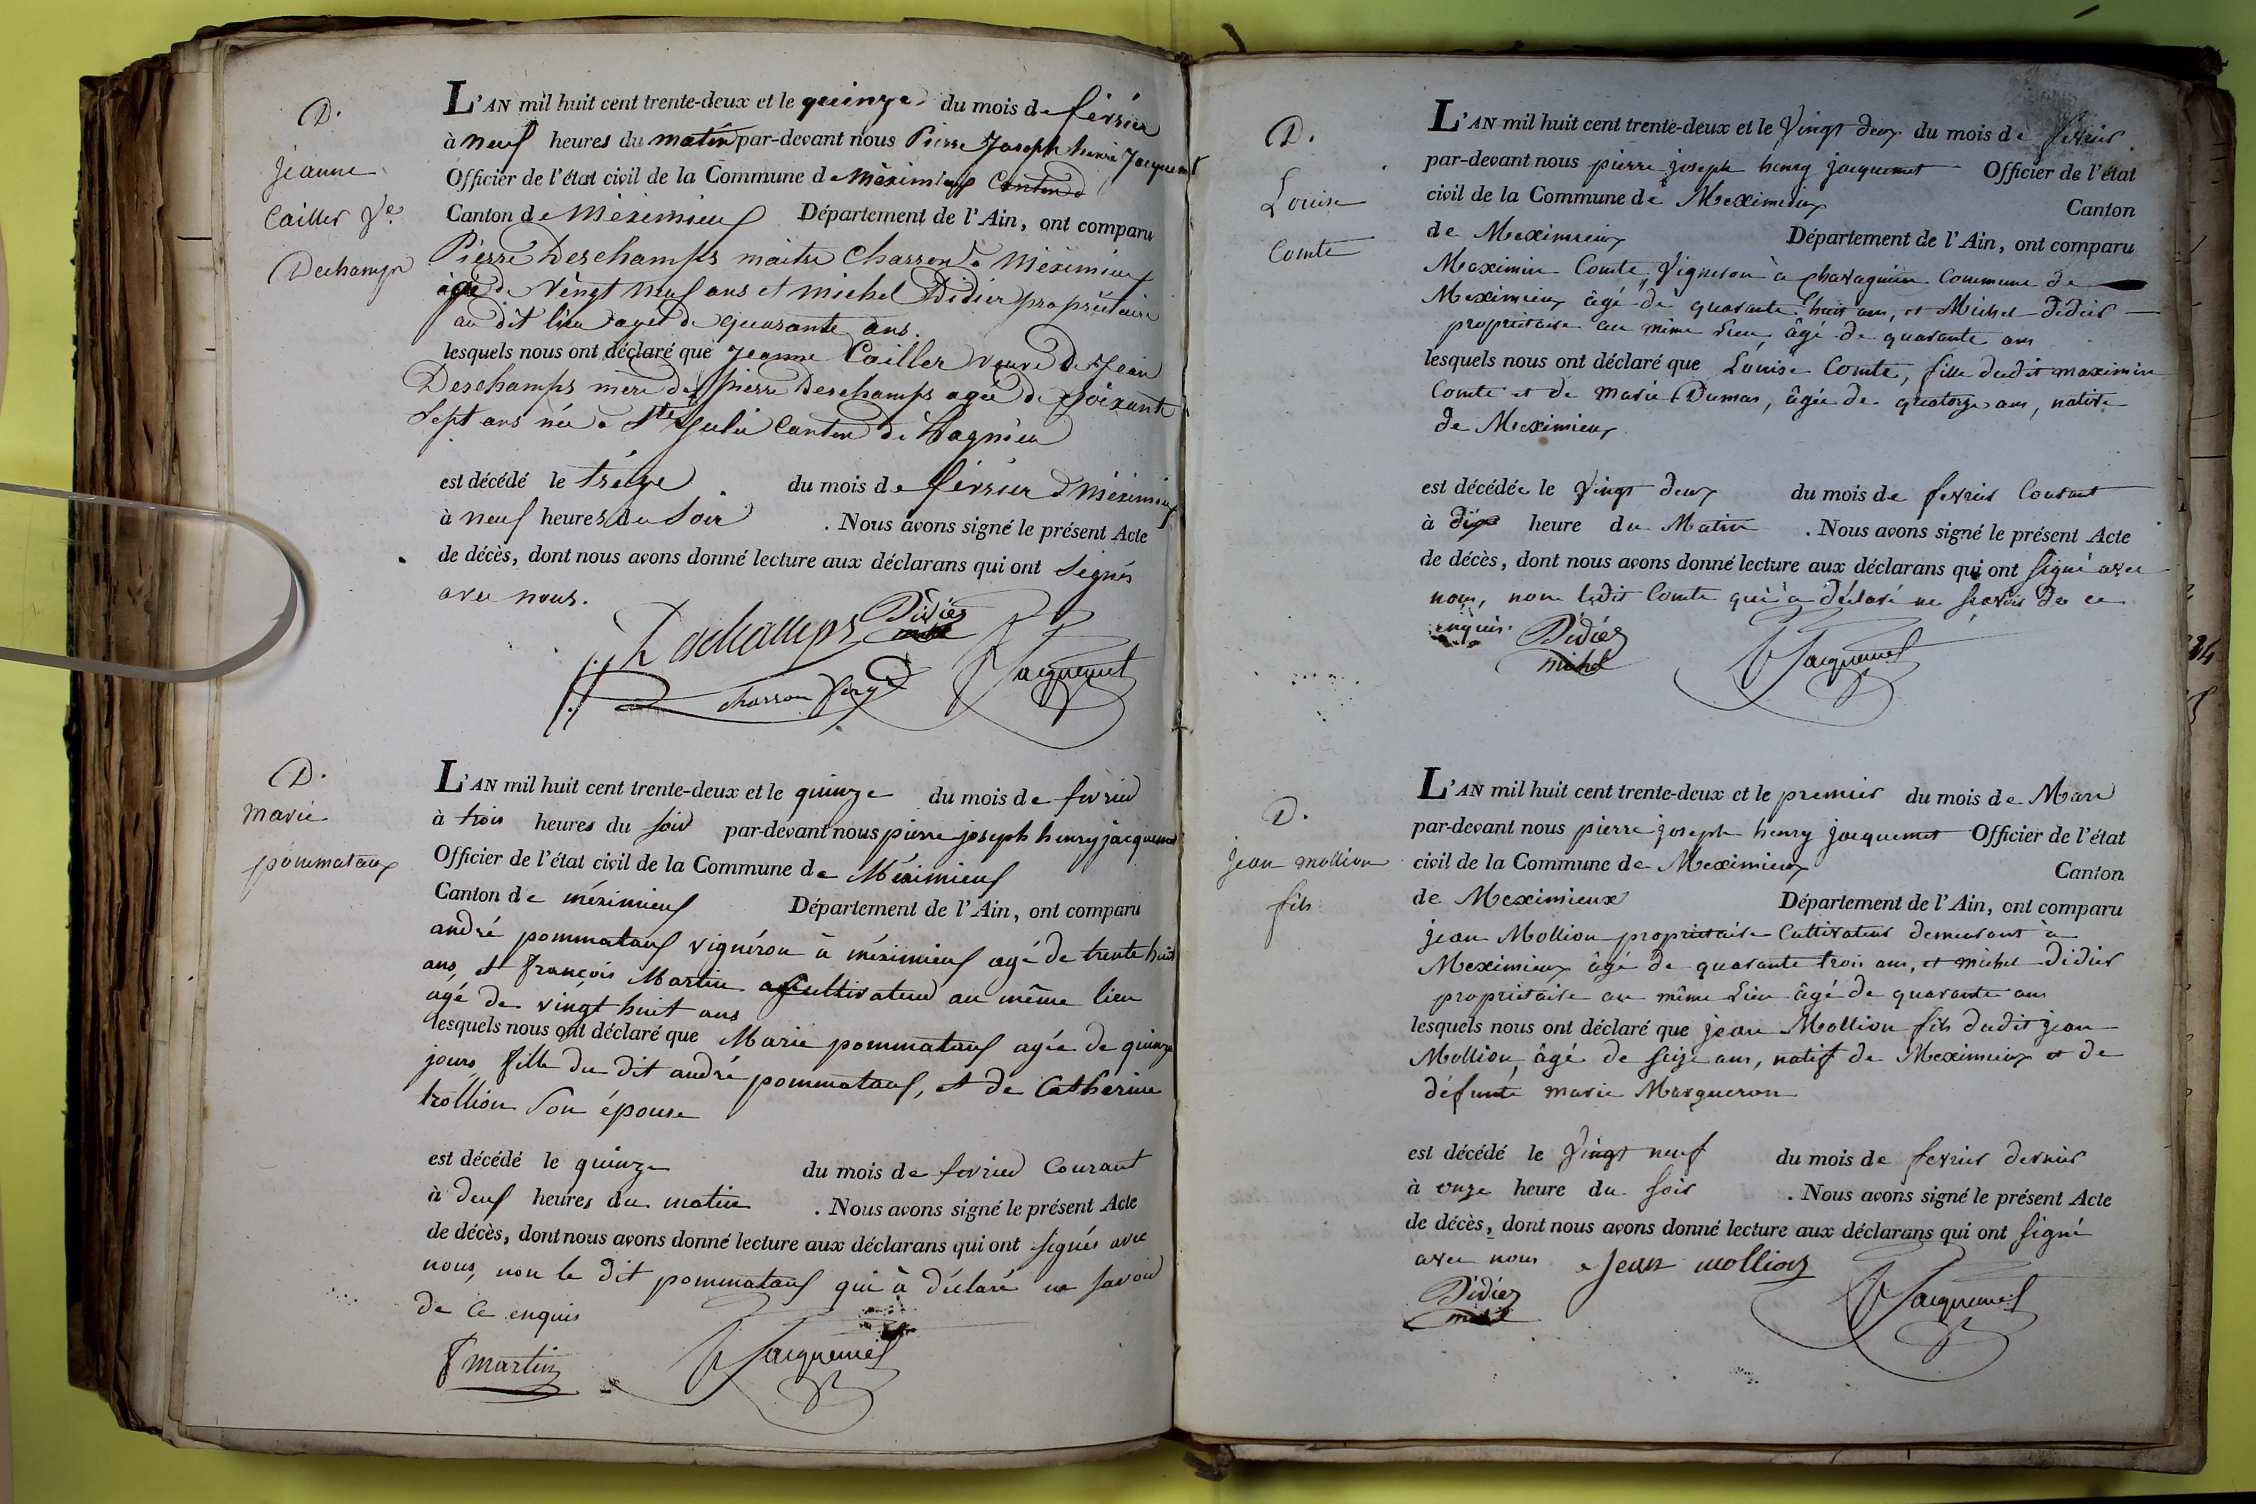 D.
jeanne
Cailler Ve.
Dechamps
L'AN mil huit cent trente-deux et le quinze du mois de février
à neuf heures du matin par-devant nous Pierre Joseph henri Jacquemet
Officier de l'état civil de la Commune de Méximieux Canton de
Canton de Méximieux Département de l'Ain, ont comparu
Pierre Deschamps maitre Charron à Méximieux
agé de vingt neuf ans et michel Didier propriétaire
au dit lieu agé de quarante ans.
lesquels nous ont déclaré que jeanne Cailler veuve de Jean
Deschamps mere de pierre Deschamps agée de soixante
Sept ans née a Ste Julie Canton de Lagnieu
est décédé le treize du mois de février à Méximieux
à neuf heures du Soir . Nous avons signé le présent Acte
de décès, dont nous avons donné lecture aux déclarans qui ont Signés
avec nous.
Deschamps Didier
michel Jacquemet
charron
D.
marie
pommataux
L'AN mil huit cent trente-deux et le quinze du mois de fevrier
à trois heures du soir par-devant nous pierre joseph henry jacquemet
Officier de l'état civil de la Commune de Méximieux
Canton de méximieux Département de l'Ain, ont comparu
andré pommataux vignéron à méximieux agé de trente huit
ans, et françois Martin cultivateur au même lieu
agé de vingt huit ans
lesquels nous ont déclaré que Marie pommataux agée de quinze
jours fille du dit andré pommataux, et de Catherine
trollion son épouse
est décédé le quinze du mois de fevrier Courant
à deux heures du matin . Nous avons signé le présent Acte
de décès, dont nous avons donné lecture aux déclarans qui ont signés avec
nous, non le dit pommataux qui à déclaré ne savoir
de ce enquis
f martin Jacquemet
D.
Louise
Comte
L'AN mil huit cent trente-deux et le Vingt deux du mois de fevrier
par-devant nous pierre joseph henry jacquemet Officier de l'état
civil de la Commune de Meximieux Canton
de Meximieux Département de l'Ain, ont comparu
Maximin Comte, Vigneron à Charagnin Commune de
Meximieux âgé de quarante huit ans, et Michel Didier
propriétaire au même Lieu, âgé de quarante ans
lesquels nous ont déclaré que Louise Comte, fille dudit maximin
Comte et de Marie Dumas, âgée de quatorze ans, native
de Meximieux
est décédée le Vingt deux du mois de fevrier Courant
à dix heure du Matin . Nous avons signé le présent Acte
de décès, dont nous avons donné lecture aux déclarans qui ont signé avec
nous, non ledit Comte qui a déclaré ne savoir de ce
enquis.
Didier
michel Jacquemet
D.
jean mollion
fils
L'AN mil huit cent trente-deux et le premier du mois de Mars
par-devant nous pierre joseph henry jacquemet Officier de l'état
civil de la Commune de Meximieux Canton
de Meximieux Département de l'Ain, ont comparu
jean Mollion propriétaire Cultivateur demeurant a
Meximieux âgé de quarante trois ans, et michel Didier
propriétaire au même Lieu âgé de quarante ans
lesquels nous ont déclaré que jean Mollion fils dudit jean
Mollion, âgé de seize ans, natif de Meximieux et de
défunte marie Margueron
est décédé le Vingt neuf du mois de fevrier dernier
à onze heure du soir . Nous avons signé le présent Acte
de décès, dont nous avons donné lecture aux déclarans qui ont signé
avec nous Jean mollion
Didier
michel Jacquemet